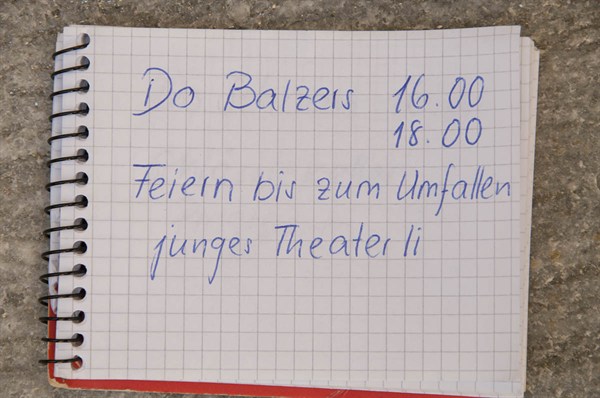 Do Balzers 16.00
18.00
Feiern bis zum Umfallen
junges Theater li